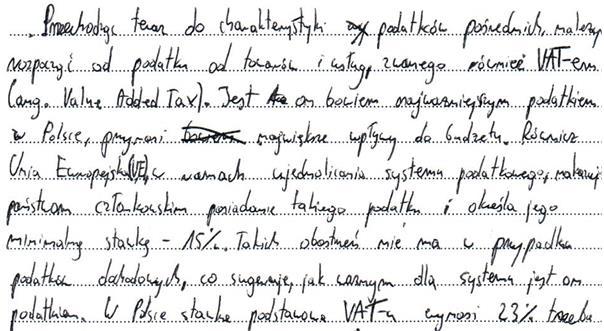 Przechodząc teraz do charakterystyki podatków pośrednich, należy
rozpocząć od podatku od towarów i usług, zwanego również VAT-em
(ang. Value Added Tax). Jest on bowiem najważniejszym podatkiem
w Polsce, przynosi największe wpływy do budżetu. Również
Unia Europejska (UE), w ramach ujednolicania systemu podatkowego, nakazuje
państwom członkowskim posiadanie takiego podatku i określa jego
minimalną stawkę - 15%. Takich obostrzeń nie ma w przypadku
podatków dochodowych, co sugeruje, jak ważnym dla systemu jest on
podatkiem. W Polsce stawka podstawowa VAT-u wynosi 23%, trzeba